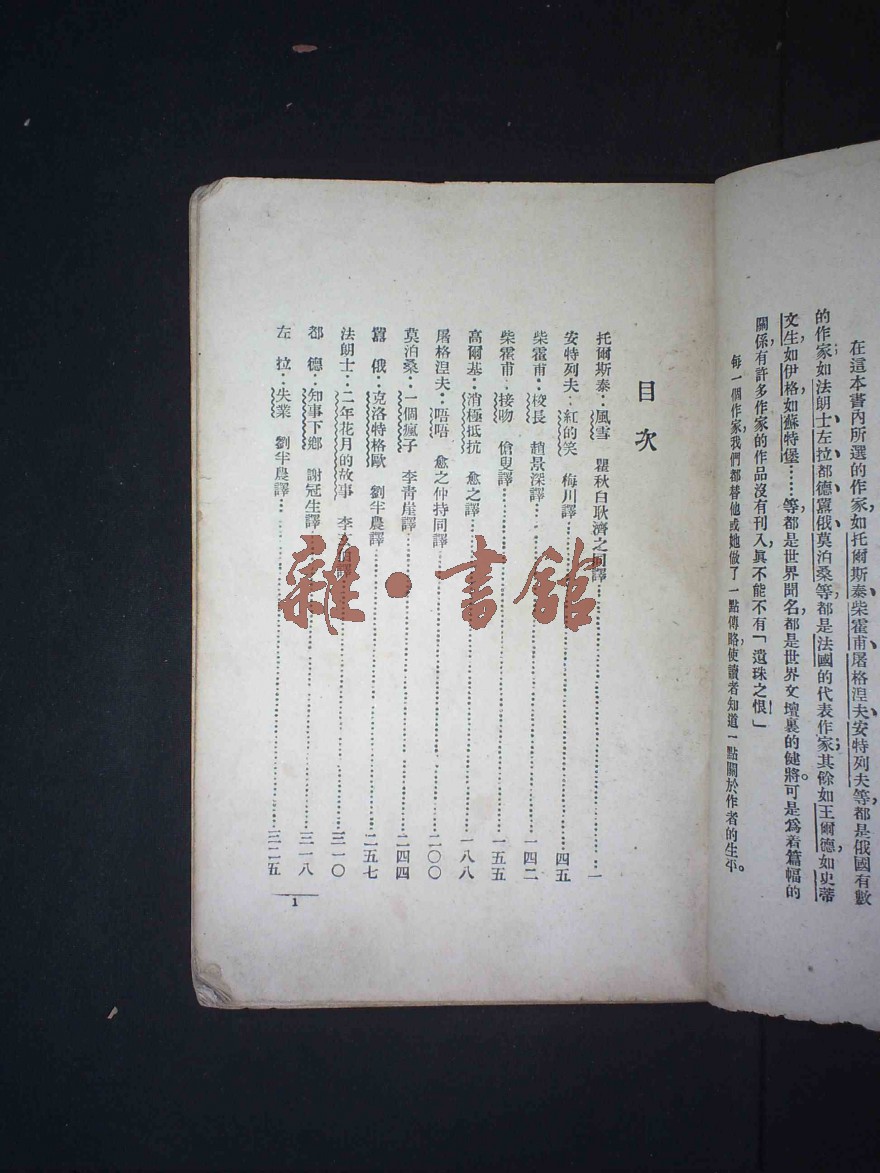 在這本書內所選的作家，如托爾斯泰、柴霍甫、屠格涅夫、安特列夫等，都是俄國有數
的作家；如法朗士、左拉、都德、囂俄、莫泊桑等，都是法國的代表作家；其餘如王爾德，如史蒂
文生，如伊格，如蘇特堡……等，都是世界聞名，都是世界文壇裏的健將。可是爲着篇幅的
關係，有許多作家的作品沒有刊入，眞不能不有「遺珠之恨」
每一個作家，我們都替他或她做了一點傳略，使讀者知道一點關於作者的生平。
目次
托爾斯泰：風雪 瞿秋白耿濟之同譯……一
安特列夫：紅的笑 梅川譯……四五
柴霍甫：校長 趙景深譯……一四二
柴霍甫：接吻 傖叟譯……一五五
高爾基：消極抵抗 愈之譯……一八八
屠格涅夫：唔唔 愈之仲持同譯……二〇〇
莫泊桑：一個瘋子 李青崖譯……二四四
囂俄：克洛特格歐 劉半農譯……二五七
法朗士：二年花月的故事 李……三一〇
都德：知事下鄉 謝冠生譯……三一八
左拉：失業 劉半農譯……三二五
1
雜·書館